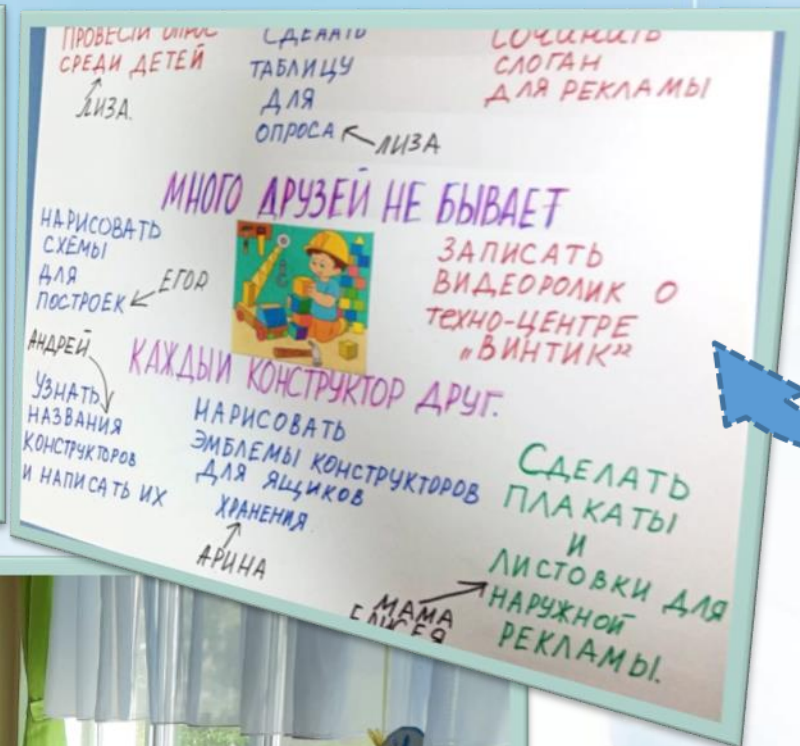 ПРОВЕСТИ ОПРОС
СРЕДИ ДЕТЕЙ
ЛИЗА.
СДЕЛАТЬ
ТАБЛИЦУ
ДЛЯ
ОПРОСА
ЛИЗА
СОЧИНИТЬ
СЛОГАН
ДЛЯ РЕКЛАМЫ
МНОГО ДРУЗЕЙ НЕ БЫВАЕТ
НАРИСОВАТЬ
СХЕМЫ
ДЛЯ
ПОСТРОЕК
ЕГОР
ЗАПИСАТЬ
ВИДЕОРОЛИК О
ТЕХНО-ЦЕНТРЕ
„ВИНТИК”
КАЖДЫЙ КОНСТРУКТОР ДРУГ.
АНДРЕЙ
УЗНАТЬ
НАЗВАНИЯ
КОНСТРУКТОРОВ
И НАПИСАТЬ ИХ
НАРИСОВАТЬ
ЭМБЛЕМЫ КОНСТРУКТОРОВ
ДЛЯ ЯЩИКОВ
ХРАНЕНИЯ
АРИНА
СДЕЛАТЬ
ПЛАКАТЫ
И
ЛИСТОВКИ ДЛЯ
НАРУЖНОЙ
РЕКЛАМЫ.
МАМА
ЕЛИСЕЯ